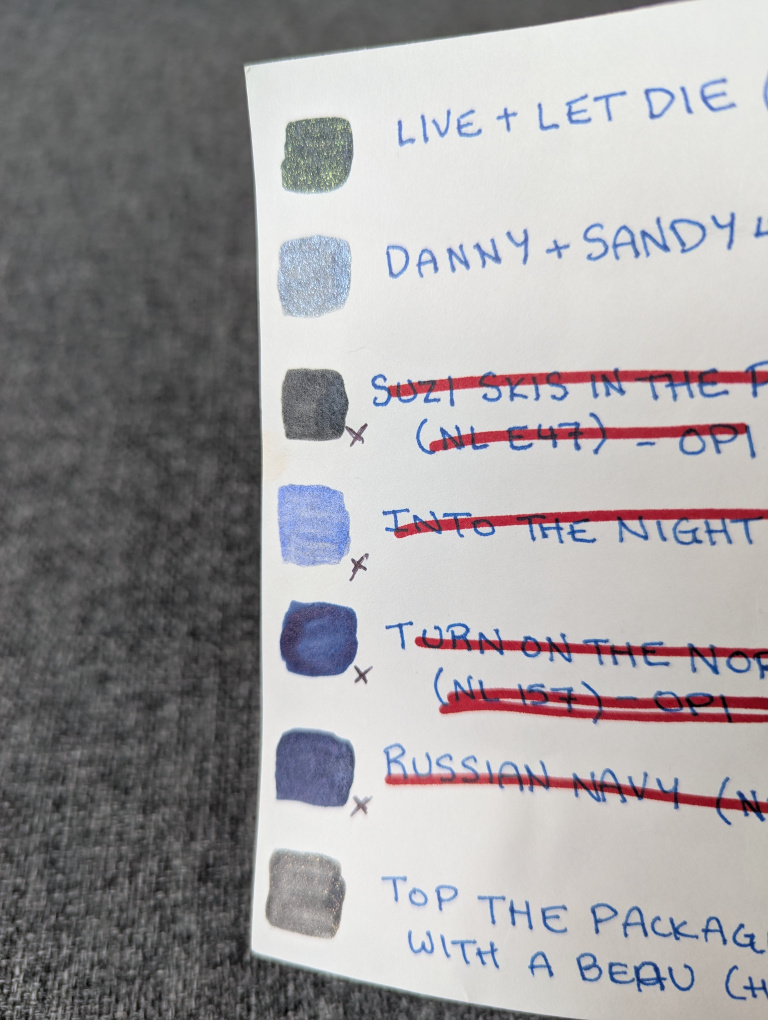 LIVE + LET DIE (
DANNY + SANDY 4
SUZI SKIS IN THE P
(NL E47) - OPI
INTO THE NIGHT
TURN ON THE NOR
(NL I57) - OPI
RUSSIAN NAVY (N
TOP THE PACKAG
WITH A BEAU (H